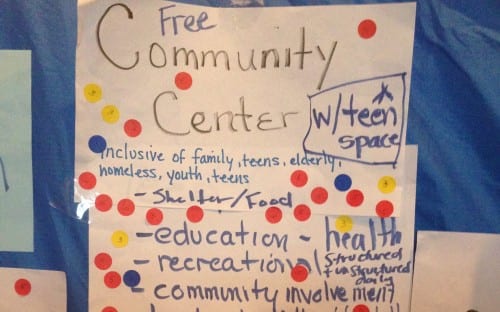 Free
Community
Center
w/ teen
space
Inclusive of family, teens, elderly,
homeless, youth, teens
- Shelter/Food
- education - health
- recreational structured
+ unstructured
- community involvement